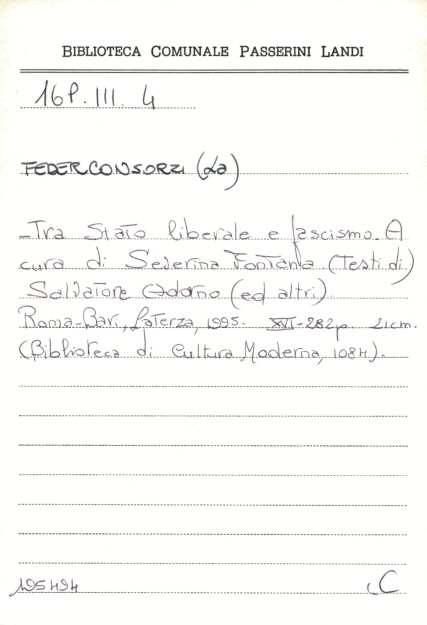 BIBLIOTECA COMUNALE PASSERINI LANDI
16P. III. 4
FEDERCONSORZI (La)
-Tra Stato liberale e fascismo. A
cura di Severina Fontana (Testi di)
Salvatore Adorno (ed altri).
Roma-Bari, Laterza, 1995. XVI-282p. 21cm.
(Biblioteca di Cultura Moderna, 1084).
195494 C